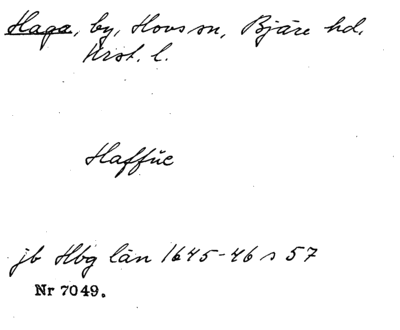 Haga, by, Hovs sn, Bjäre hd.
Krst. l.
Haffŭe
jb Hbg län 1645-46 s 57
Nr 7049.